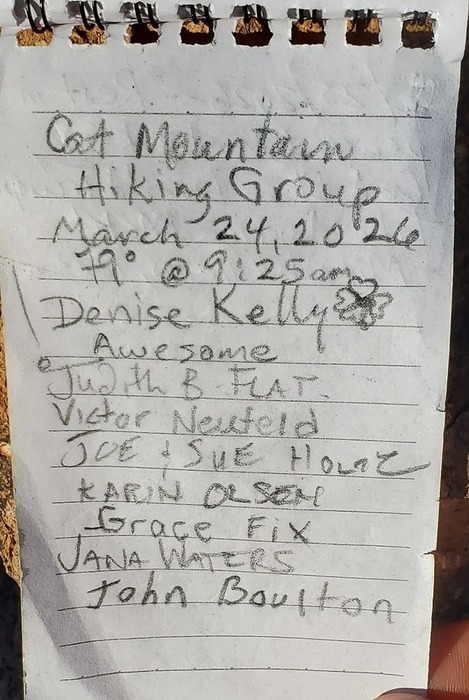 Cat Mountain
Hiking Group
March 24, 2026
79° @ 9:25am
Denise Kelly
Awesome
Judith B. FLAT.
Victor Neufeld
JOE & SUE HOLTZ
KARIN OLSEN
Grace Fix
JANA WATERS
John Boulton